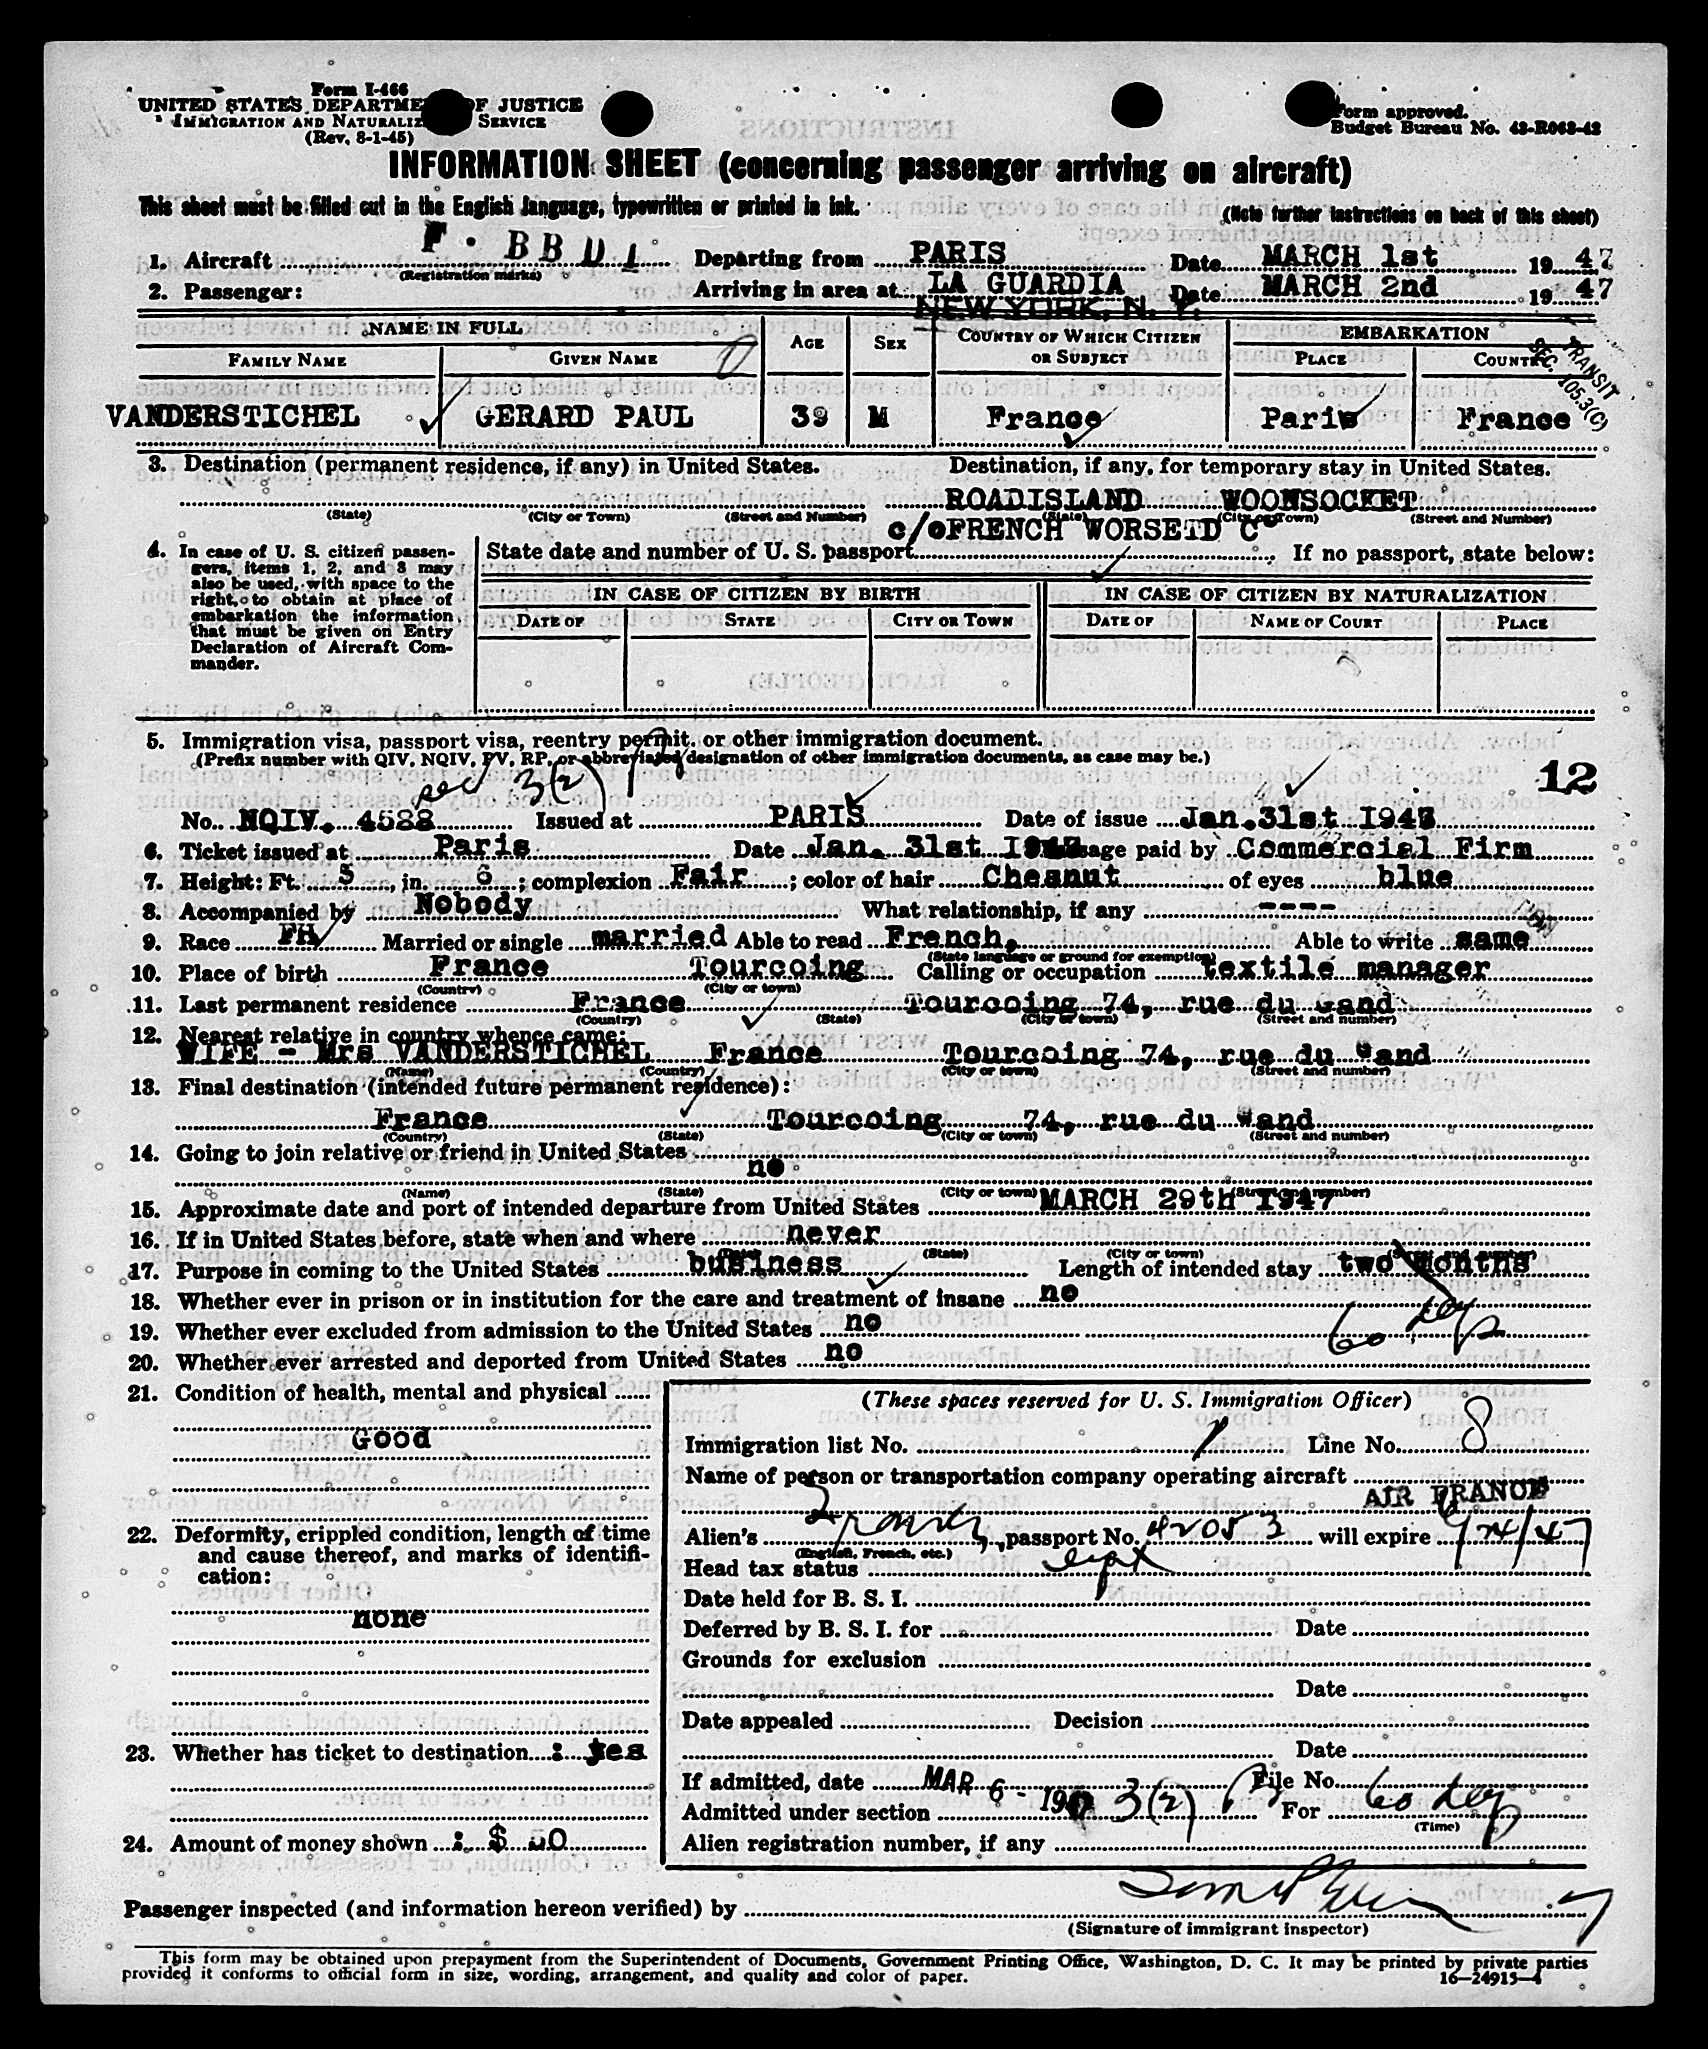 Form I-466
UNITED STATES DEPARTME OF JUSTICE
IMMIGRATION AND NATURALIZ SERVICE
(Rev. 8-1-45)
Form approved.
Budget Bureau No. 43-R063-42
INFORMATION SHEET (concerning passenger arriving on aircraft)
This sheet must be filled out in the English language, typewritten or printed in ink.
(Note further instructions on back of this sheet)
1. Aircraft F · BBDI Departing from PARIS Date MARCH 1st 1947
(Registration marks)
2. Passenger: Arriving in area at LA GUARDIA Date MARCH 2nd 1947
NEW YORK, N. Y.
NAME IN FULL AGE SEX COUNTRY OF WHICH CITIZEN OR SUBJECT EMBARKATION
FAMILY NAME GIVEN NAME PLACE COUNTRY
TRANSIT
SEC. 105.3(C)
VANDERSTICHEL GERARD PAUL 39 M France Paris France
3. Destination (permanent residence, if any) in United States. Destination, if any, for temporary stay in United States.
ROADISLAND WOONSOCKET
(State) (City or Town) (Street and Number) (State) (City or Town) (Street and Number)
c/oFRENCH WORSETD C°
4. In case of U. S. citizen passen-
gers, items 1, 2, and 3 may
also be used, with space to the
right, to obtain at place of
embarkation the information
that must be given on Entry
Declaration of Aircraft Com-
mander.
State date and number of U. S. passport If no passport, state below:
IN CASE OF CITIZEN BY BIRTH IN CASE OF CITIZEN BY NATURALIZATION
DATE OF STATE CITY OR TOWN DATE OF NAME OF COURT PLACE
5. Immigration visa, passport visa, reentry permit, or other immigration document.
(Prefix number with QIV, NQIV, PV, RP, or abbreviated designation of other immigration documents, as case may be.)
sec 3(2)
12
No. NQIV. 4588 Issued at PARIS Date of issue Jan. 31st 1947
6. Ticket issued at Paris Date Jan. 31st 1947 Passage paid by Commercial Firm
7. Height: Ft. 5, in. 6; complexion Fair; color of hair Chesnut of eyes blue
8. Accompanied by Nobody What relationship, if any ----
9. Race FH Married or single married Able to read French, Able to write same
(State language or ground for exemption)
10. Place of birth France Tourcoing Calling or occupation textile manager
(Country) (City or town)
11. Last permanent residence France Tourcoing 74, rue du Gand
(Country) (State) (City or town) (Street and number)
12. Nearest relative in country whence came:
WIFE - Mrs VANDERSTICHEL France Tourcoing 74, rue du Gand
(Name) (Country) (City or town) (Street and number)
13. Final destination (intended future permanent residence):
France Tourcoing 74, rue du Gand
(Country) (State) (City or town) (Street and number)
14. Going to join relative or friend in United States
no
(Name) (State) (City or town) (Street and number)
15. Approximate date and port of intended departure from United States MARCH 29th 1947
16. If in United States before, state when and where never
(Date) (State) (City or town) (Street and number)
17. Purpose in coming to the United States business Length of intended stay two months
18. Whether ever in prison or in institution for the care and treatment of insane no
60 days
19. Whether ever excluded from admission to the United States no
20. Whether ever arrested and deported from United States no
21. Condition of health, mental and physical
Good
22. Deformity, crippled condition, length of time
and cause thereof, and marks of identifi-
cation:
none
23. Whether has ticket to destination : yes
24. Amount of money shown : $ 50
(These spaces reserved for U. S. Immigration Officer)
Immigration list No. 1 Line No. 8
Name of person or transportation company operating aircraft
AIR FRANCE
Alien's French, passport No. 42053 will expire
(English, French, etc.)
Head tax status
Date held for B. S. I.
Deferred by B. S. I. for Date
Grounds for exclusion
Date
Date appealed Decision
Date
If admitted, date MAR 6 - 194 File No.
Admitted under section 3(2) For 60 days
(Time)
Alien registration number, if any
Passenger inspected (and information hereon verified) by
(Signature of immigrant inspector)
This form may be obtained upon prepayment from the Superintendent of Documents, Government Printing Office, Washington, D. C. It may be printed by private parties
provided it conforms to official form in size, wording, arrangement, and quality and color of paper. 16—24915-4